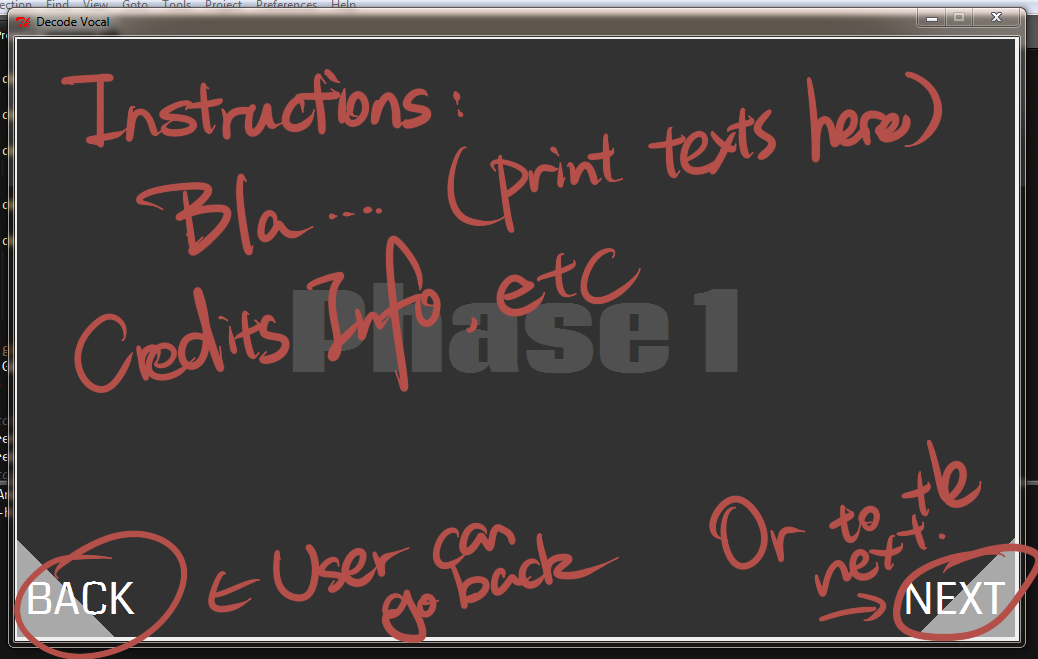 Find View Goto Tools Project Preferences Help
Decode Vocal
Instructions:
Bla..... (print texts here)
Credits Info, etc
Phase 1
BACK
← User can
go back
Or to the
next.
→
NEXT